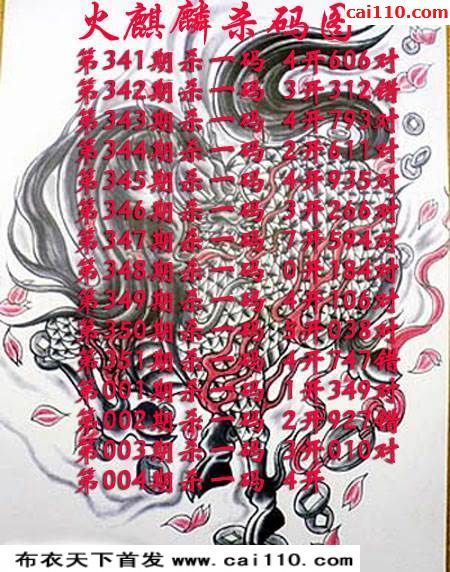 cai110.com
火麒麟杀码图
第341期杀一码 4开606对
第342期杀一码 3开312错
第343期杀一码 4开793对
第344期杀一码 2开611对
第345期杀一码 4开935对
第346期杀一码 3开266对
第347期杀一码 7开594对
第348期杀一码 0开184对
第349期杀一码 4开106对
第350期杀一码 5开038对
第351期杀一码 4开747错
第001期杀一码 1开349对
第002期杀一码 2开927错
第003期杀一码 3开010对
第004期杀一码 4开
布衣天下首发 www.cai110.com